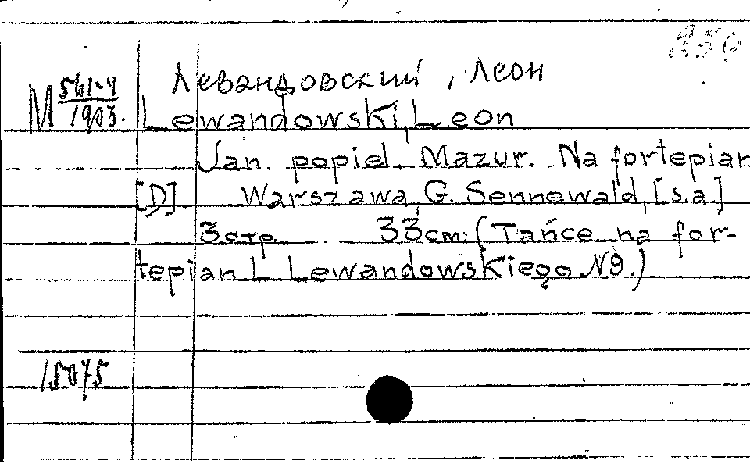 Левандовский, Леон
М 561-4/1903.
Lewandowski, Leon
Jan popiel. Mazur. Na fortepian
[D]. Warszawa, G. Sennewald, [s.a.]
3 стр. 33 см. (Tańce na for-
tepian L. Lewandowskiego N9.)
15075